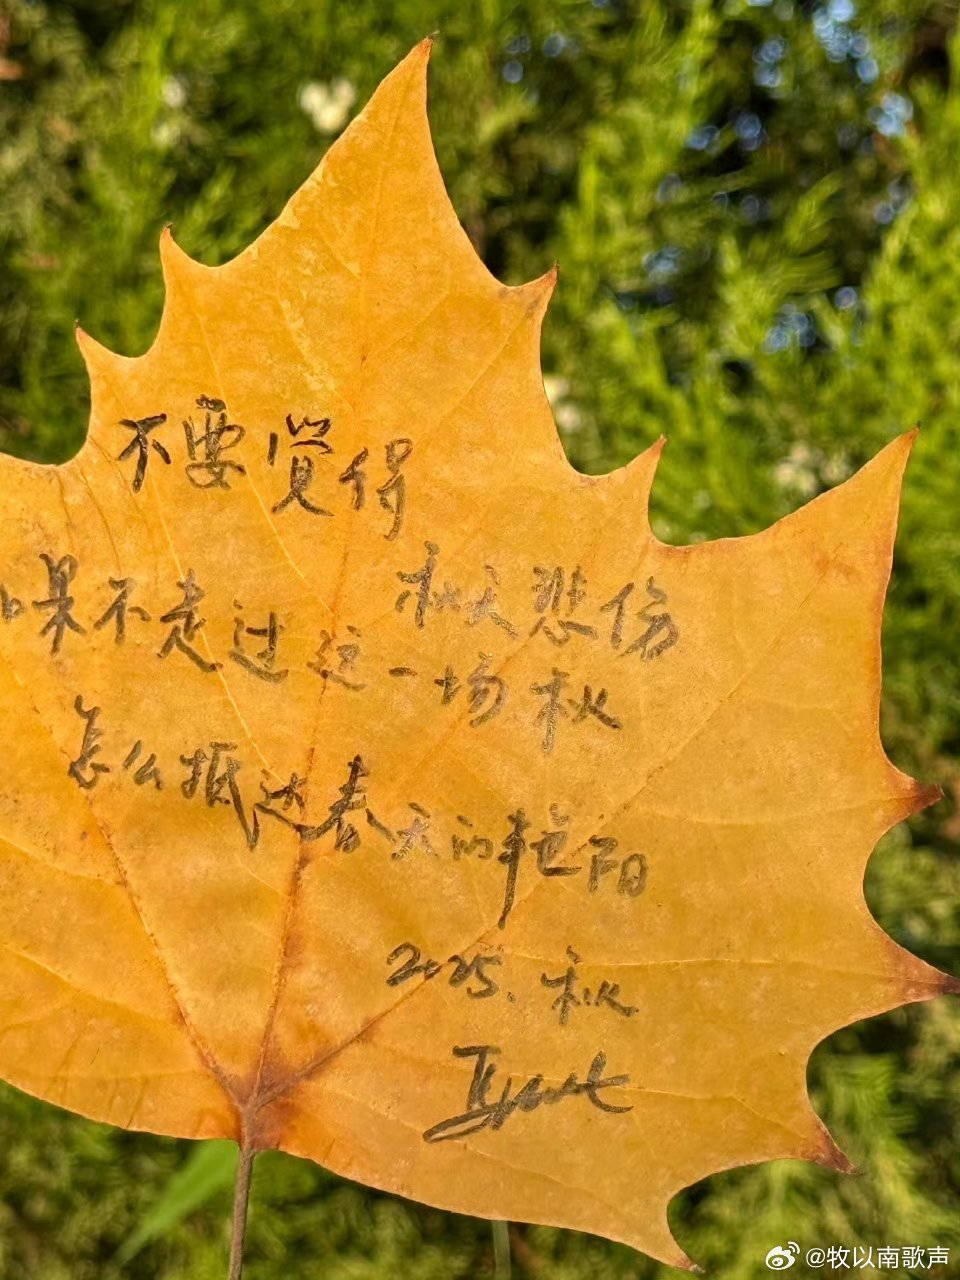 不要觉得
秋天悲伤
如果不走过这一场秋
怎么抵达春天的艳阳
2025.秋
@牧以南歌声